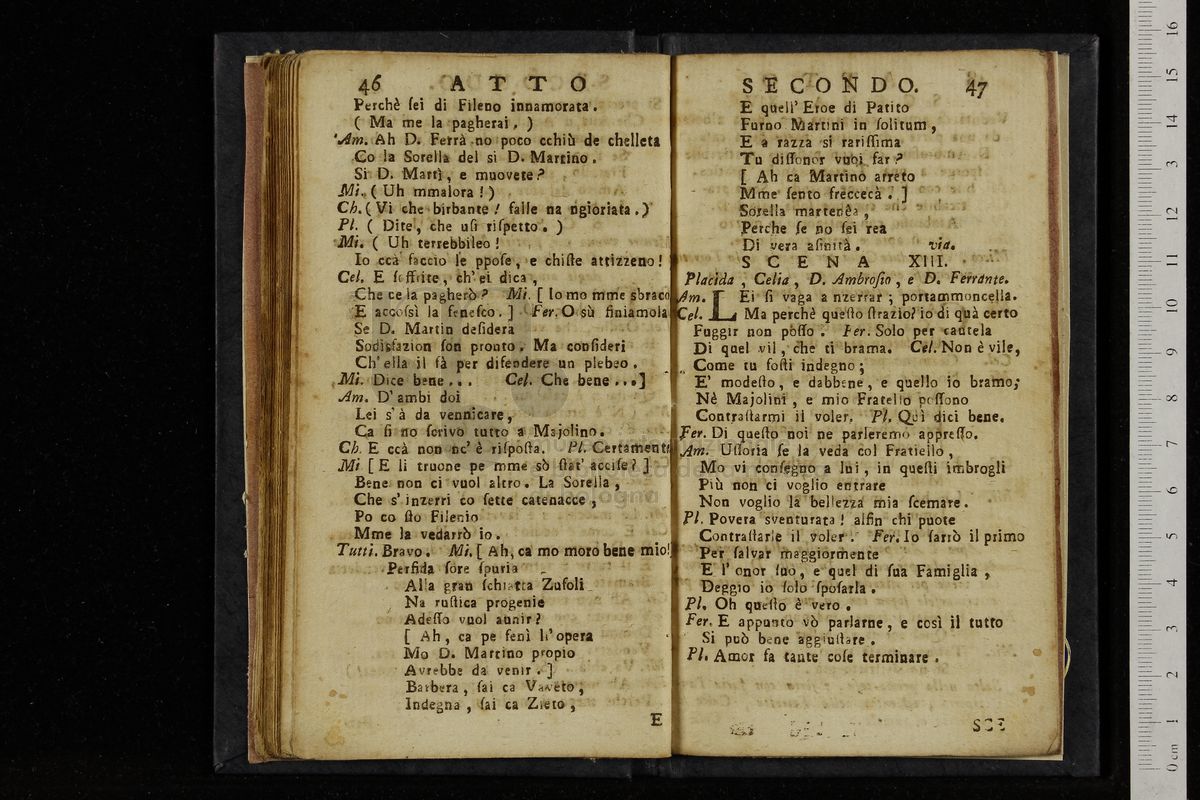 46 ATTO
Perchè ſei di Fileno innamorata.
( Ma me la pagherai. )
Am. Ah D. Ferrà no poco cchiù de chelleta
Co la Sorella del sì D. Martino.
Si D. Martì, e muovete?
Mi. ( Uh mmalora! )
Ch. ( Vi che birbante! falle na ngioriata. )
Pl. ( Dite, che uſi riſpetto. )
Mi. ( Uh terrebbileo!
Io ccà faccio le ppoſe, e chiſte attizzeno!
Cel. E ſoffrite, ch' ei dica,
Che ce la pagherò? Mi. [ Io mo mme sbraco
E accoſsì la feneſco. ] Fer. O sù finiamola
Se D. Martin deſidera
Sodisfazion ſon pronto. Ma conſideri
Ch' ella il fà per difendere un plebeo.
Mi. Dice bene... Cel. Che bene...]
Am. D' ambi doi
Lei s' à da vennicare,
Ca ſi no ſcrivo tutto a Majolino.
Ch. E ccà non nc' è riſpoſta. Pl. Certament
Mi [ E li truone pe mme sò ſtat' acciſe? ]
Bene non ci vuol altro. La Sorella,
Che s' inzerri co ſette catenacce,
Po co ſto Fileno
Mme la vedarrò io.
Tutti. Bravo. Mi. [ Ah, ca mo moro bene mio!
Perfida ſore ſpuria
Alla gran ſchiatta Zufoli
Na ruſtica progenie
Adeſſo vuol aunir?
[ Ah, ca pe fenì ll' opera
Mo D. Martino propio
Avrebbe da venir. ]
Barbera, ſai ca Vaveto,
Indegna, ſai ca Zieto,
E
SECONDO. 47
E quell' Eroe di Patito
Furno Martini in ſolitum,
E a razza sì rariſſima
Tu diſſonor vuoi far?
[ Ah ca Martino arreto
Mme ſento freccecà. ]
Sorella martenêa,
Perche ſe no ſei rea
Di vera aſinità. via.
SCENA XIII.
Placida, Celia, D. Ambroſio, e D. Ferrante.
Am. LEi ſi vaga a nzerrar; portammoncella.
Cel. Ma perchè queſto ſtrazio? io di quà certo
Fuggir non poſſo. Fer. Solo per cautela
Di quel vil, che ti brama. Cel. Non è vile,
Come tu foſti indegno;
E' modeſto, e dabbene, e quello io bramo;
Nè Majolini, e mio Fratello poſſono
Contraſtarmi il voler. Pl. Quì dici bene.
Fer. Di queſto noi ne parleremo appreſſo.
Am. Uſſoria ſe la veda col Fratiello,
Mo vi conſegno a lui, in queſti imbrogli
Più non ci voglio entrare
Non voglio la bellezza mia ſcemare.
Pl. Povera sventurata! alfin chi puote
Contraſtarle il voler. Fer. Io ſarrò il primo
Per ſalvar maggiormente
E l' onor ſuo, e quel di ſua Famiglia,
Deggio io ſolo ſpoſarla.
Pl. Oh queſto è vero.
Fer. E appunto vò parlarne, e così il tutto
Si può bene aggiuſtare.
Pl. Amor fa tante coſe terminare.
SCE